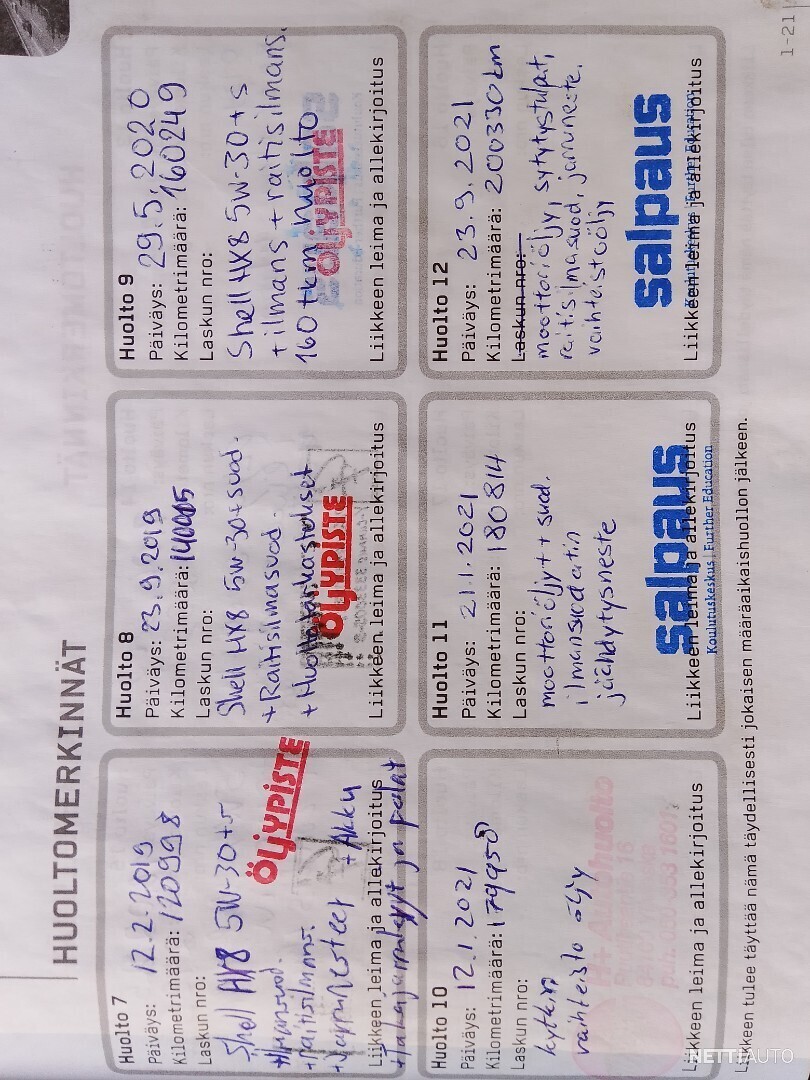 HUOLTOMERKINNÄT
Huolto 7
Päiväys: 12.2.2019
Kilometrimäärä: 120998
Laskun nro:
Shell HX8 5W-30+s
+Ilmansuod.
+Raitisilmans.
+Jarrunesteet +Akku
ÖLJYPISTE
Liikkeen leima ja allekirjoitus
+Takajarrulevyt ja palat
Huolto 8
Päiväys: 23.9.2019
Kilometrimäärä: 140005
Laskun nro:
Shell HX8 5W-30+suod.
+Raitisilmasuod.
+Huoltotarkastukset
ÖLJYPISTE
Liikkeen leima ja allekirjoitus
Huolto 9
Päiväys: 29.5.2020
Kilometrimäärä: 160249
Laskun nro:
Shell HX8 5W-30+s
+ilmans +raitisilmans.
160tkm huolto
ÖLJYPISTE
Liikkeen leima ja allekirjoitus
Huolto 10
Päiväys: 12.1.2021
Kilometrimäärä: 179950
Laskun nro:
kytkin
vaihteisto öljy
A+ Autohuolto
Liikkeen leima ja allekirjoitus
Huolto 11
Päiväys: 21.1.2021
Kilometrimäärä: 180814
Laskun nro:
moottoriöljyt + suod.
ilmansuodatin
jäähdytysneste
salpaus
Liikkeen leima ja allekirjoitus
Koulutuskeskus | Further Education
Huolto 12
Päiväys: 23.9.2021
Kilometrimäärä: 200330km
Laskun nro:
moottoriöljy, sytytystulpat,
raitisilmasuod, jarruneste.
vaihteistoöljy
salpaus
Koulutuskeskus | Further Education
Liikkeen leima ja allekirjoitus
Liikkeen tulee täyttää nämä täydellisesti jokaisen määräaikaishuollon jälkeen.
1-21
NETTIAUTO